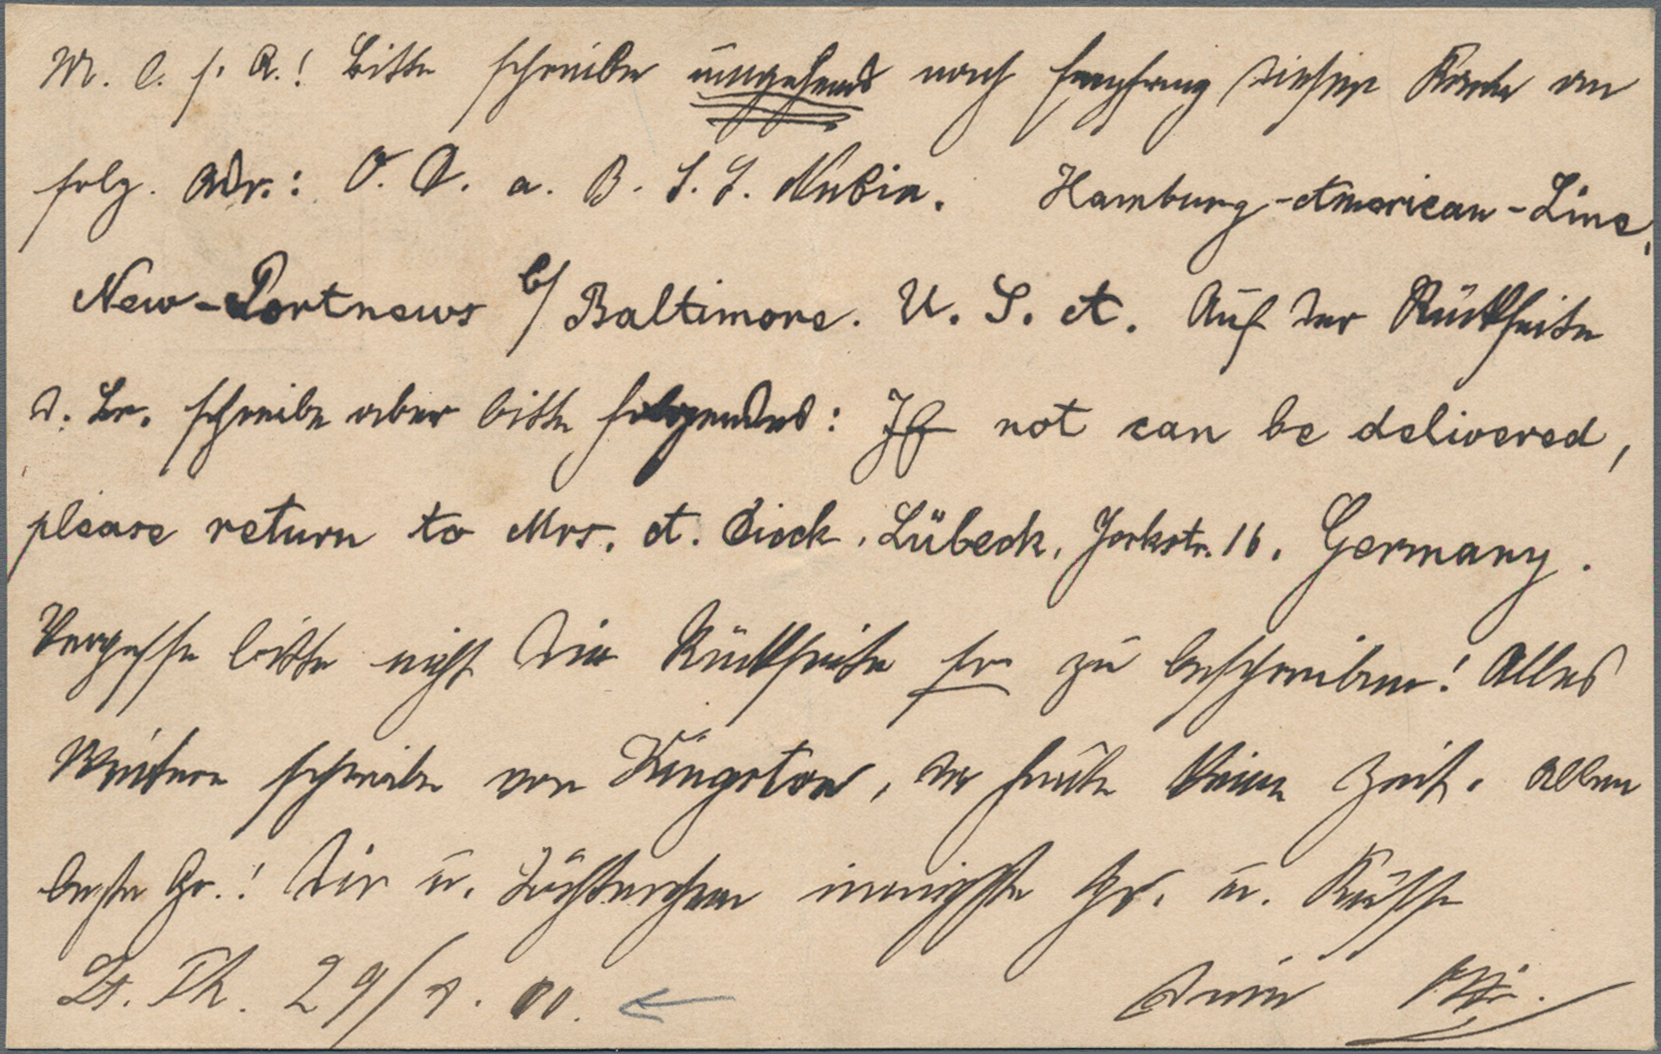 M. l. s. A.! Bitte schreibe umgehend nach Empfang dieser Karte an
folg. Adr.: O. D. a. B. S. S. Nubia. Hamburg-American-Line,
New-Portnews b/ Baltimore. U. S. A. Auf der Rückseite
d. Br. schreibe aber bitte folgendes: If not can be delivered,
please return to Mrs. A. Dieck, Lübeck, Yorkstr. 16. Germany.
Vergesse bitte nicht die Rückseite so zu beschreiben! Alles
Weitere schreibe von Kingston, da heute keine Zeit. Allen
beste Gr.! Dir u. Töchterchen innigste Gr. u. Küsse
St. Th. 29/7. 00. Dein